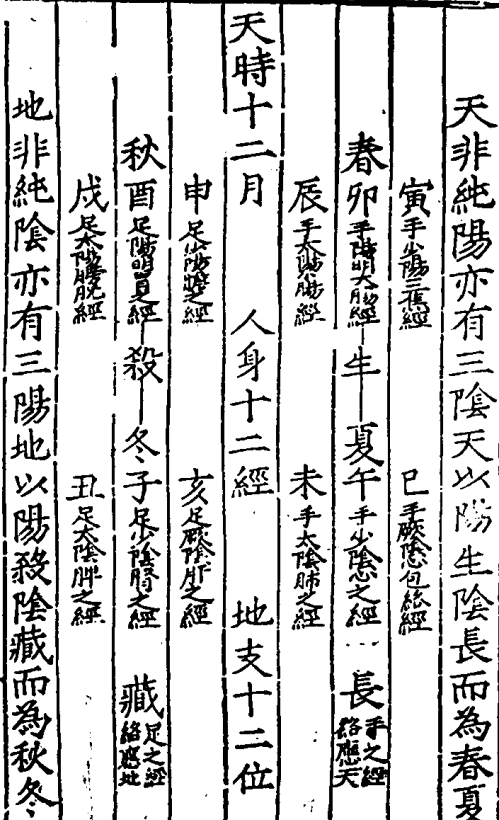 天非純陽亦有三陰天以陽生陰長而為春夏
寅手少陽三焦經 巳手厥陰心包絡經
春卯手陽明大腸經—生—夏午手少陰心之經…長手之經絡應天
辰手太陽小腸經 未手太陰肺之經
天時十二月 人身十二經 地支十二位
申足少陽膽之經 亥足厥陰肝之經
秋酉足陽明胃之經—殺—冬子足少陰腎之經 藏足之經絡應地
戌足太陽膀胱經 丑足太陰脾之經
地非純陰亦有三陽地以陽殺陰藏而為秋冬